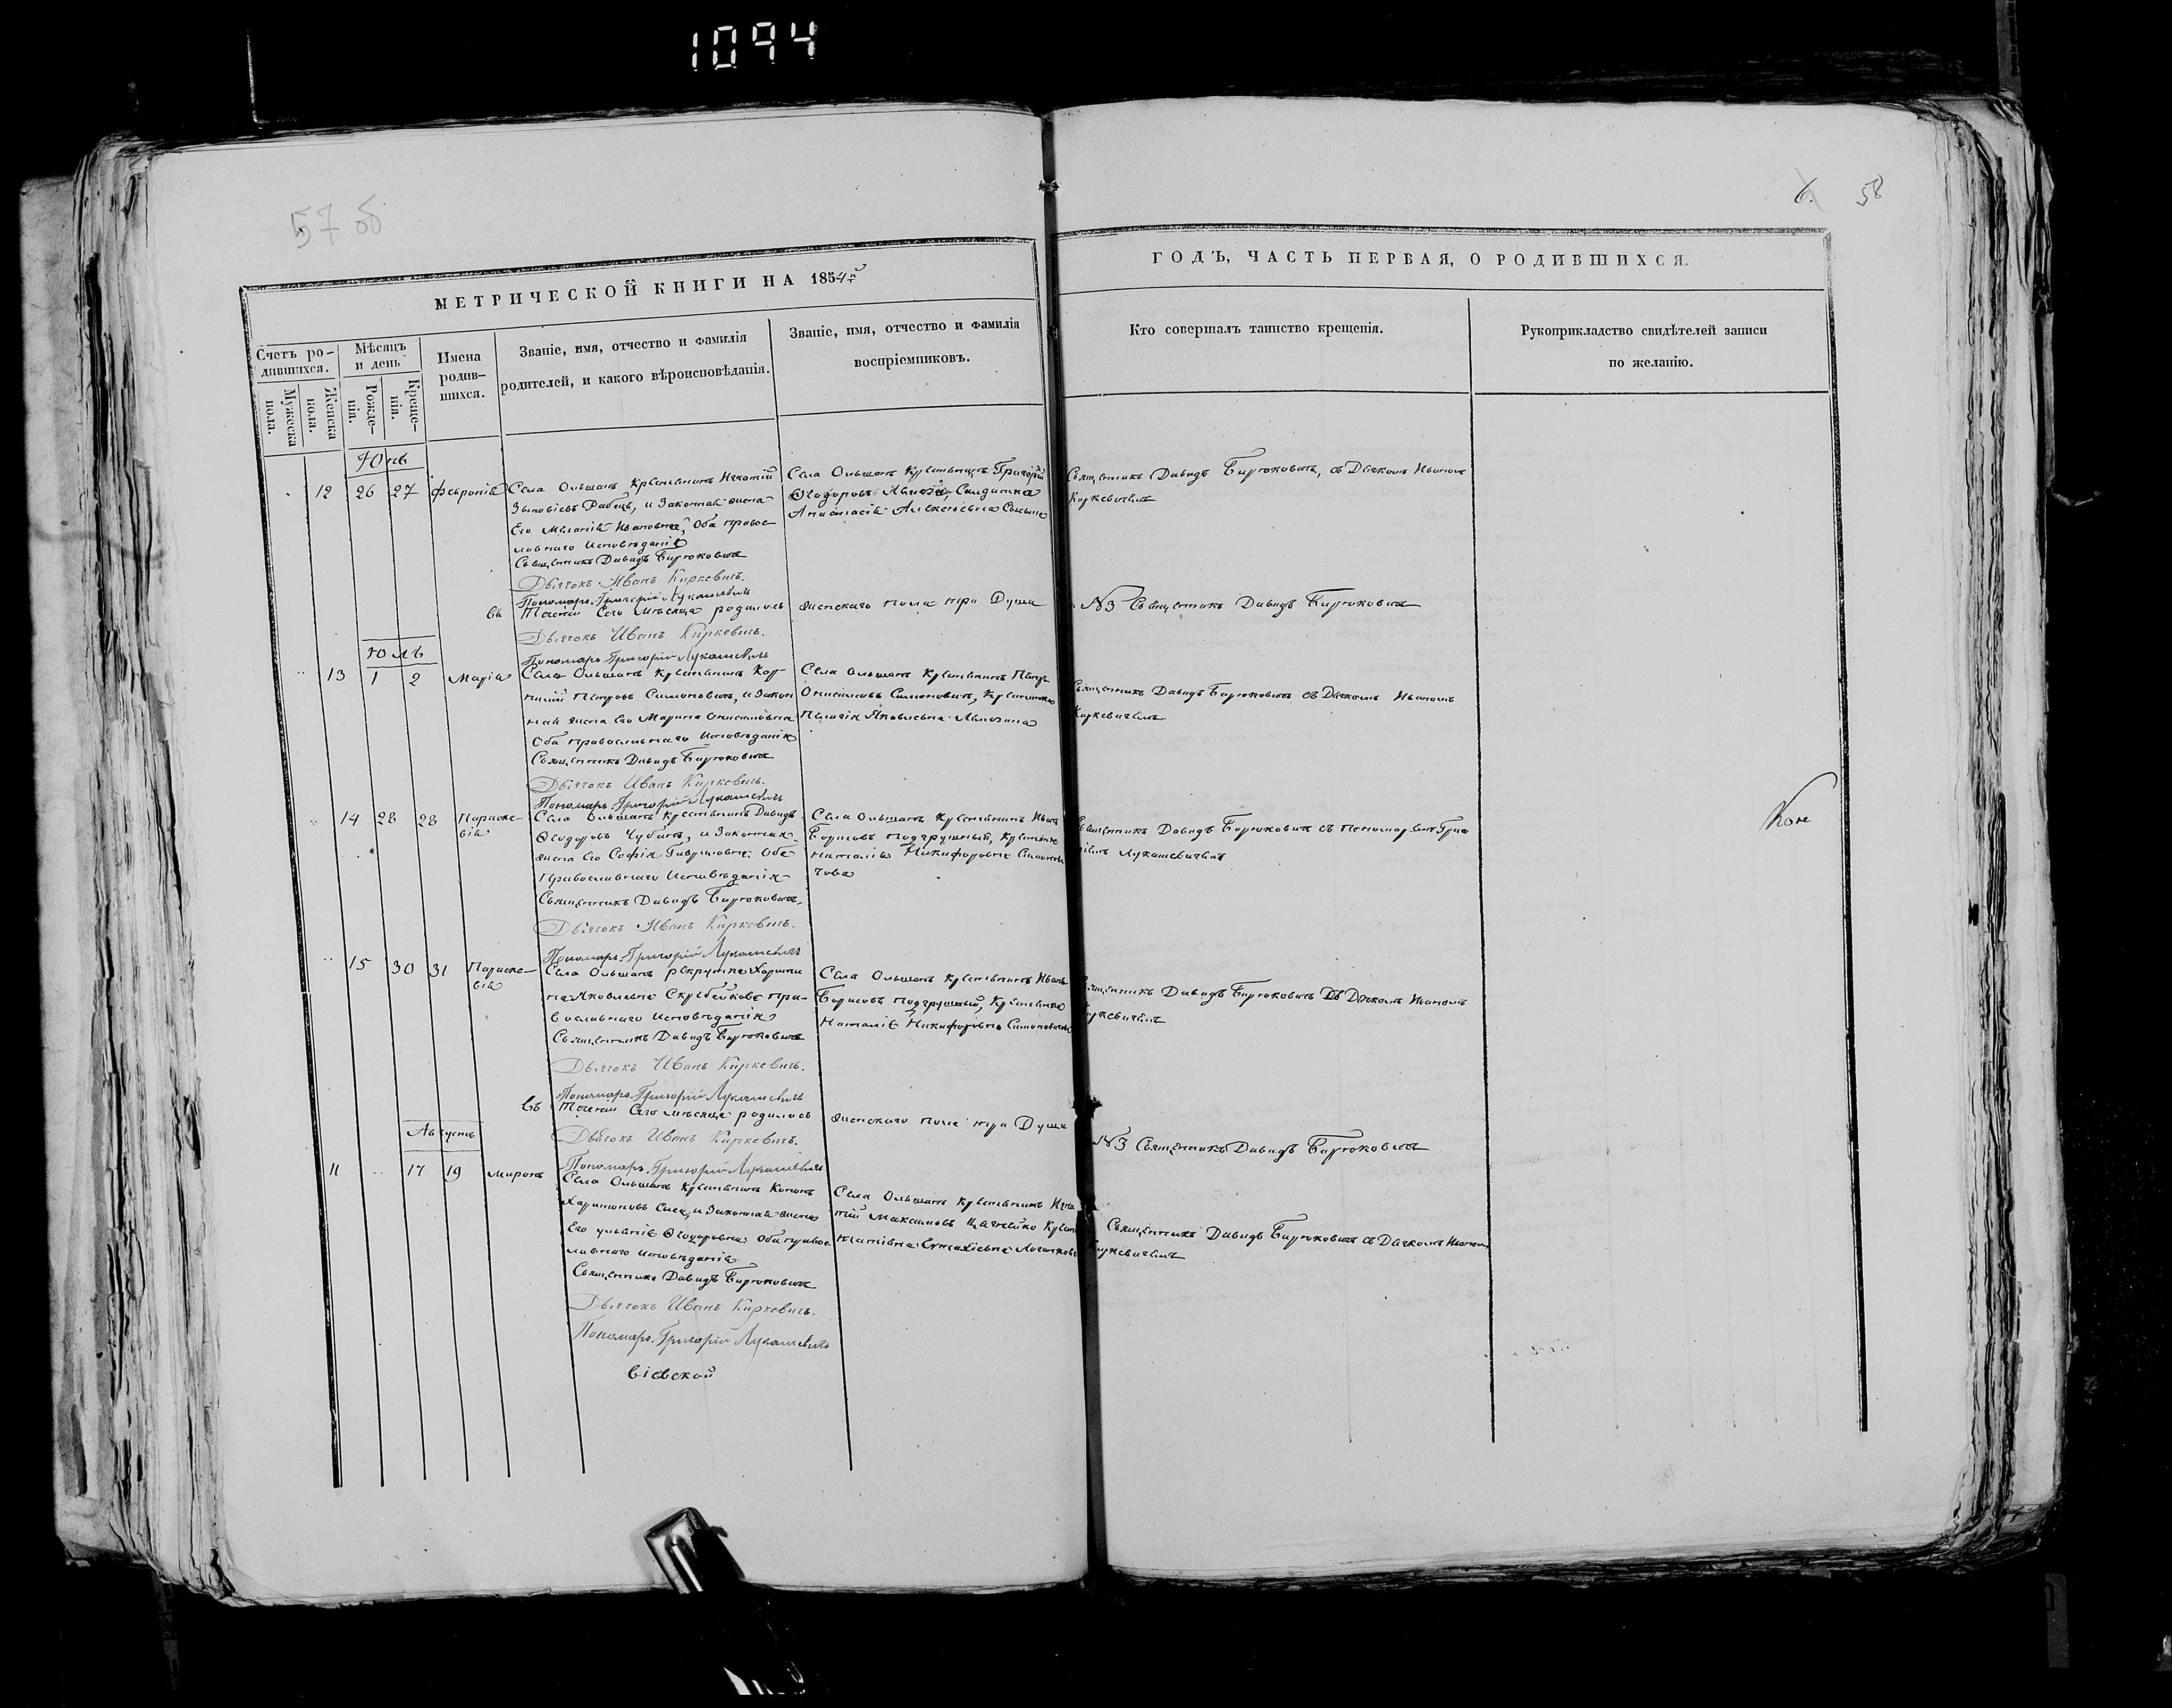 1094
57 об
6. 58
МЕТРИЧЕСКОЙ КНИГИ НА 1854й
ГОДЪ, ЧАСТЬ ПЕРВАЯ, О РОДИВШИХСЯ.
Счетъ ро-
дившихся.
Мужеска
пола.
Женска
пола.
Мѣсяцъ
и день
Рожде-
нія.
Креще-
нія.
Имена
родив-
шихся.
Званіе, имя, отчество и фамилія
родителей, и какого вѣроисповѣданія.
Званіе, имя, отчество и фамилія
воспріемниковъ.
Кто совершалъ таинство крещенія.
Рукоприкладство свидѣтелей записи
по желанію.
Юнь
12 26 27 Февронія
Села Ольшанъ Крестьянинъ Игнатій
Зѣновіевъ Рабецъ, и Законная жена
Его Меланія Ивановна, Оба правос
лавнаго Исповѣданія
Священникъ Давидъ Бирюковичъ
Дьячокъ Иванъ Киркевичъ.
Пономарь Григорій Лукашевичъ
Села Ольшанъ Крестьянинъ Григорій
Ѳеодоровъ Солдатка
Анастасія Алексѣевна
Священникъ Давидъ Бирюковичъ, съ Дячкомъ Иваномъ
Киркевичемъ
въ Теченіи Сего мѣсяца родилось женскаго пола три Души
№3 Священникъ Давидъ Бирюковичъ
Дьячокъ Иванъ Киркевичъ.
Пономарь Григорій Лукашевичъ
Юль
13 1 2 Марія
Села Ольшанъ Крестьянинъ Кор-
нилій Петровъ Симоновичъ, и Закон
ная жена Его Марина Онисимовна
Оба православнаго Исповѣданія
Священникъ Давидъ Бирюковичъ
Дьячокъ Иванъ Киркевичъ.
Пономарь Григорій Лукашевичъ
Села Ольшанъ Крестьянинъ Петръ
Онисимовъ Симоновичъ, Крестьянка
Пелагія Яковлевна
Священникъ Давидъ Бирюковичъ съ Дячкомъ Иваномъ
Киркевичемъ
14 28 28 Параске-
вія
Села Ольшанъ Крестьянинъ Давидъ
Ѳеодоровъ Чубатъ, и Законная
жена Его Софія Гавриловна Оба
Православнаго Исповѣданія
Священникъ Давидъ Бирюковичъ
Дьячокъ Иванъ Киркевичъ.
Пономарь Григорій Лукашевичъ
Села Ольшанъ Крестьянинъ Иванъ
Борисовъ Подгрушный, Крестьянка
Наталія Никифоровна Симонови
чова
Священникъ Давидъ Бирюковичъ съ Пономаремъ Григо
ріемъ Лукашевичемъ
Кон
15 30 31 Параске-
вія
Села Ольшанъ рекрутка Харити
на Яковлевна Скрыбейкова пра-
вославнаго Исповѣданія
Священникъ Давидъ Бирюковичъ
Дьячокъ Иванъ Киркевичъ.
Пономарь Григорій Лукашевичъ
Села Ольшанъ Крестьянинъ Иванъ
Борисовъ Подгрушный, Крестьянка
Наталія Никифоровна Симоновичова
Священникъ Давидъ Бирюковичъ съ Дячкомъ Иваномъ
Киркевичемъ
въ Теченіи Сего мѣсяца родилось женскаго пола три Души
№3 Священникъ Давидъ Бирюковичъ
Дьячокъ Иванъ Киркевичъ.
Пономарь Григорій Лукашевичъ
Августъ
11 17 19 Миронъ
Села Ольшанъ Крестьянинъ Кононъ
Харитоновъ и Законная жена
Его Ульянія Ѳеодоровна Оба правос
лавнаго исповѣданія
Священникъ Давидъ Бирюковичъ
Дьячокъ Иванъ Киркевичъ.
Пономарь Григорій Лукашевичъ
Села Ольшанъ Крестьянинъ Игна
тій Максимовъ
Евстахіевна
Священникъ Давидъ Бирюковичъ съ Дячкомъ Иваномъ
Киркевичемъ
віевской